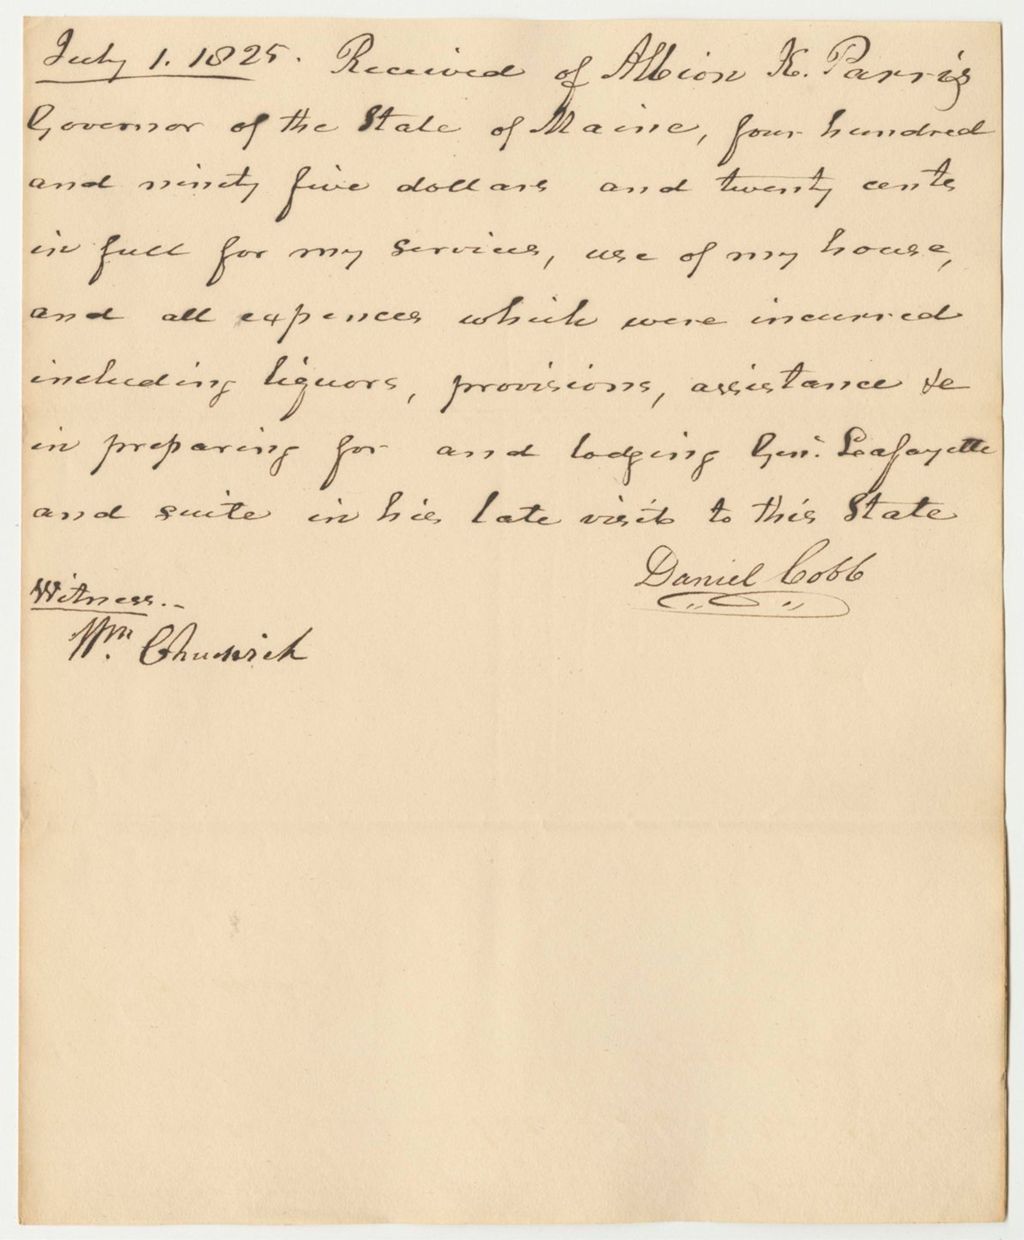 July 1. 1825. Received of Albion K. Parris
Governor of the State of Maine, four hundred
and ninety five dollars and twenty cents
in full for my services, use of my house,
and all expences which were incurred
including liquors, provisions, assistance &c
in preparing for and lodging Gen. Lafayette
and suite in his late visit to this State
Daniel Cobb
Witness..
Wm.